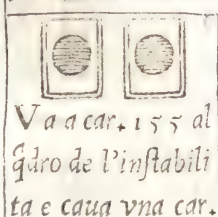 V a a car. 155 al
q̃dro de l'inſtabili
ta e caua vna car.